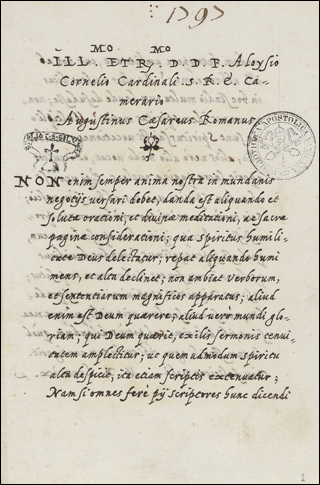 1797
MO MO
ILL ET Rᴹ. D D F. Aloysio
Cornelio Cardinali S. R. E. Ca-
merario
Augustinus Caesareus Romanus
NON enim semper anima nostra in mundanis
negotijs versari debet, danda est aliquando et
soluta orationi, et divinae meditationi, ac sacrae
paginae considerationi; qua Spiritus humili-
tate Deus delectatur; repat aliquando humi
mens, et alta declinet; non ambiat verborum,
et sententiarum magnificos apparatus; aliud
enim est Deum quaerere; aliud vero mundi glo-
riam; qui Deum quaerit, exilis sermonis tenui-
tatem amplectitur, ut quemadmodum spiritu
alta despicit, ita etiam scriptis extenuatur;
Nam si omnes ferè pij scriptores hunc dicendi